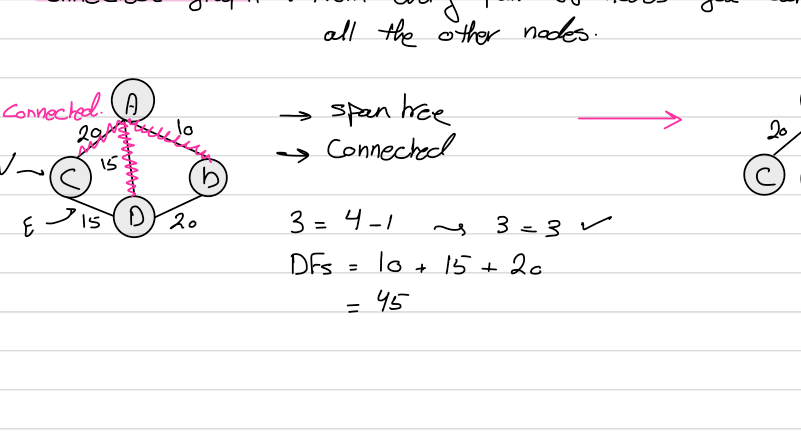 all the other nodes.
Connected.
A
20
10
→ span tree
→ Connected
20
15
C
b
C
E
15
D
20
3 = 4-1 ⇝ 3 = 3 ✓
DFs = 10 + 15 + 20
= 45